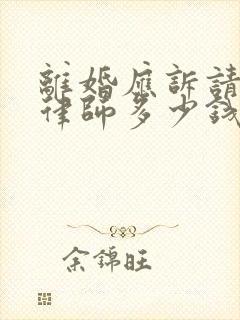 離婚應訴請
律師多少錢
余錦旺